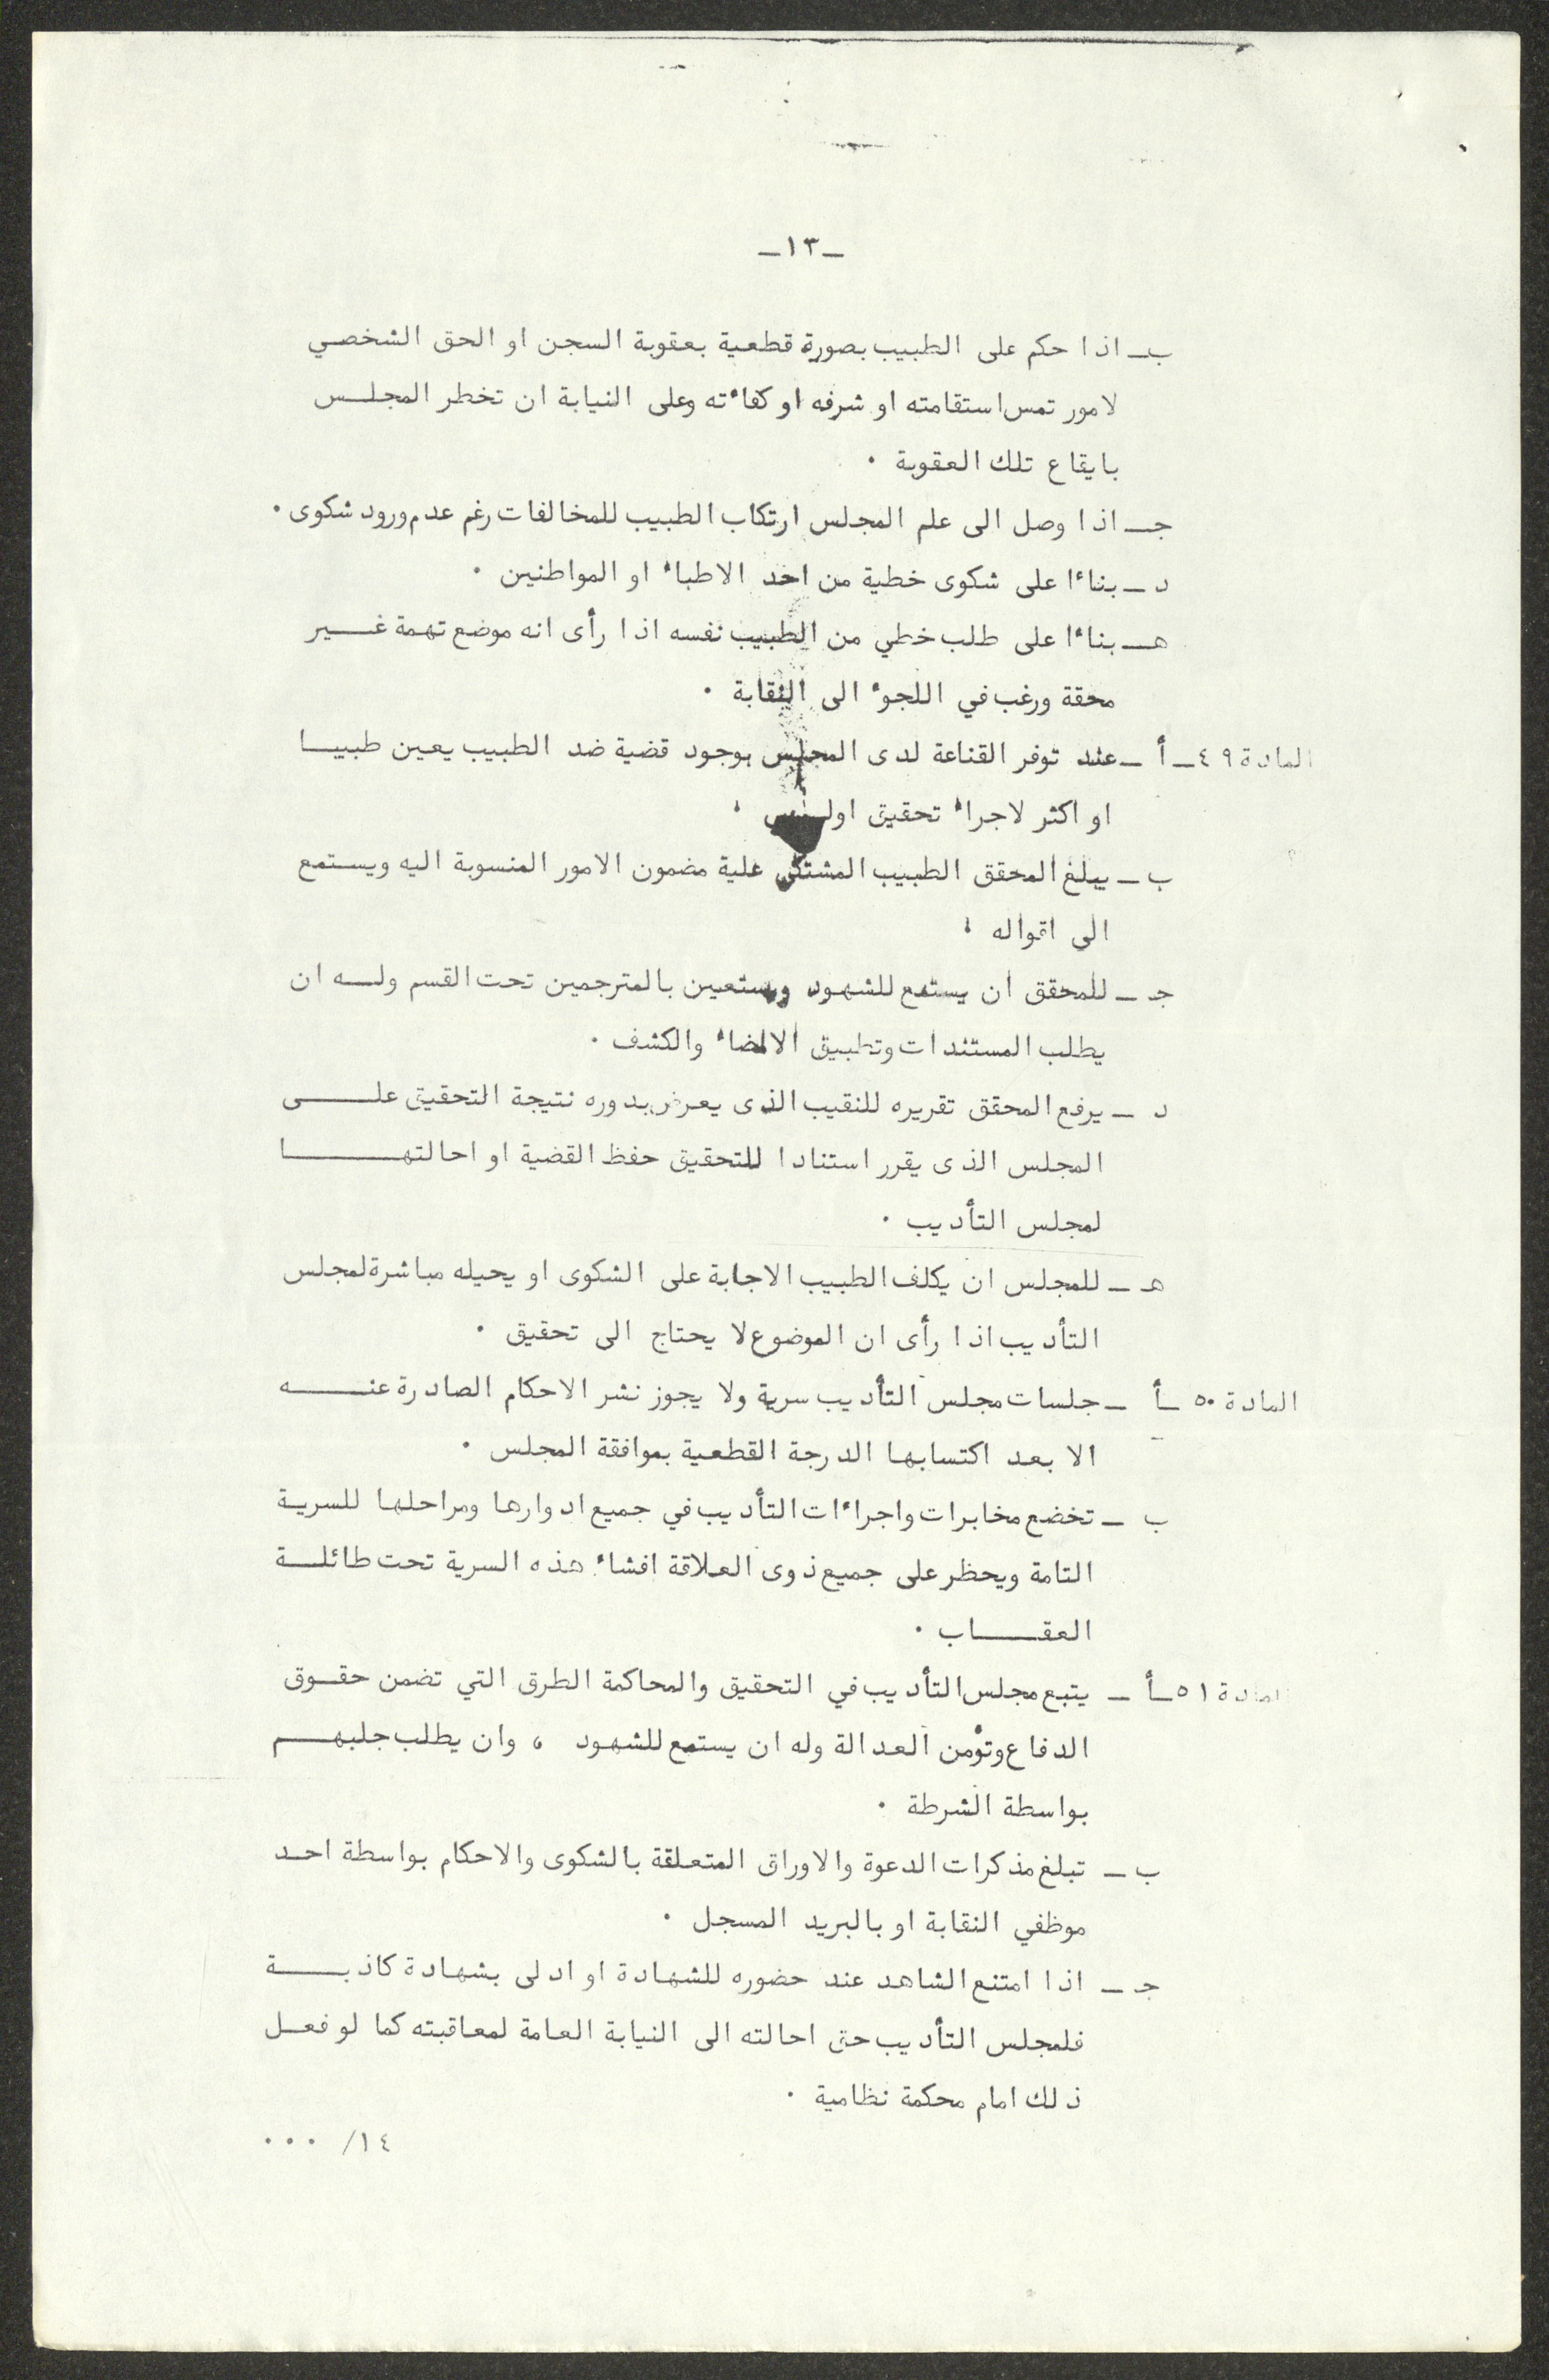 ـ١٣ـ
ب ـ اذا حكم على الطبيب بصورة قطعية بعقوبة السجن او الحق الشخصي
لامور تمس استقامته او شرفه او كفاءته وعلى النيابة ان تخطر المجلس
بايقاع تلك العقوبة .
جـ ـ اذا وصل الى علم المجلس ارتكاب الطبيب للمخالفات رغم عدم ورود شكوى .
د ـ بناءا على شكوى خطية من احد الاطباء او المواطنين .
هـ ـ بناءا على طلب خطي من الطبيب نفسه اذا رأى انه موضع تهمة غير
محقة ورغب في اللجوء الى النقابة .
المادة ٤٩ ـ أ ـ عند توفر القناعة لدى المجلس بوجود قضية ضد الطبيب يعين طبيبا
او اكثر لاجراء تحقيق اولي .
ب ـ يبلغ المحقق الطبيب المشتكى علية مضمون الامور المنسوبة اليه ويستمع
الى اقواله .
جـ ـ للمحقق ان يستمع للشهود ويستعين بالمترجمين تحت القسم وله ان
يطلب المستندات وتطبيق الامضاء والكشف .
د ـ يرفع المحقق تقريره للنقيب الذى يعرض بدوره نتيجة التحقيق على
المجلس الذى يقرر استنادا للتحقيق حفظ القضية او احالتها
لمجلس التأديب .
هـ ـ للمجلس ان يكلف الطبيب الاجابة على الشكوى او يحيله مباشرة لمجلس
التأديب اذا رأى ان الموضوع لا يحتاج الى تحقيق .
المادة ٥٠ ـ أ ـ جلسات مجلس التأديب سرية ولا يجوز نشر الاحكام الصادرة عنه
الا بعد اكتسابها الدرجة القطعية بموافقة المجلس .
ب ـ تخضع مخابرات واجراءات التأديب في جميع ادوارها ومراحلها للسرية
التامة ويحظر على جميع ذوى العلاقة افشاء هذه السرية تحت طائلة
العقاب .
المادة ٥١ ـ أ ـ يتبع مجلس التأديب في التحقيق والمحاكمة الطرق التي تضمن حقوق
الدفاع وتؤمن العدالة وله ان يستمع للشهود ، وان يطلب جلبهم
بواسطة الشرطة .
ب ـ تبلغ مذكرات الدعوة والاوراق المتعلقة بالشكوى والاحكام بواسطة احد
موظفي النقابة او بالبريد المسجل .
جـ ـ اذا امتنع الشاهد عند حضوره للشهادة او ادلى بشهادة كاذبة
فلمجلس التأديب حق احالته الى النيابة العامة لمعاقبته كما لو فعل
ذلك امام محكمة نظامية .
١٤/ ...